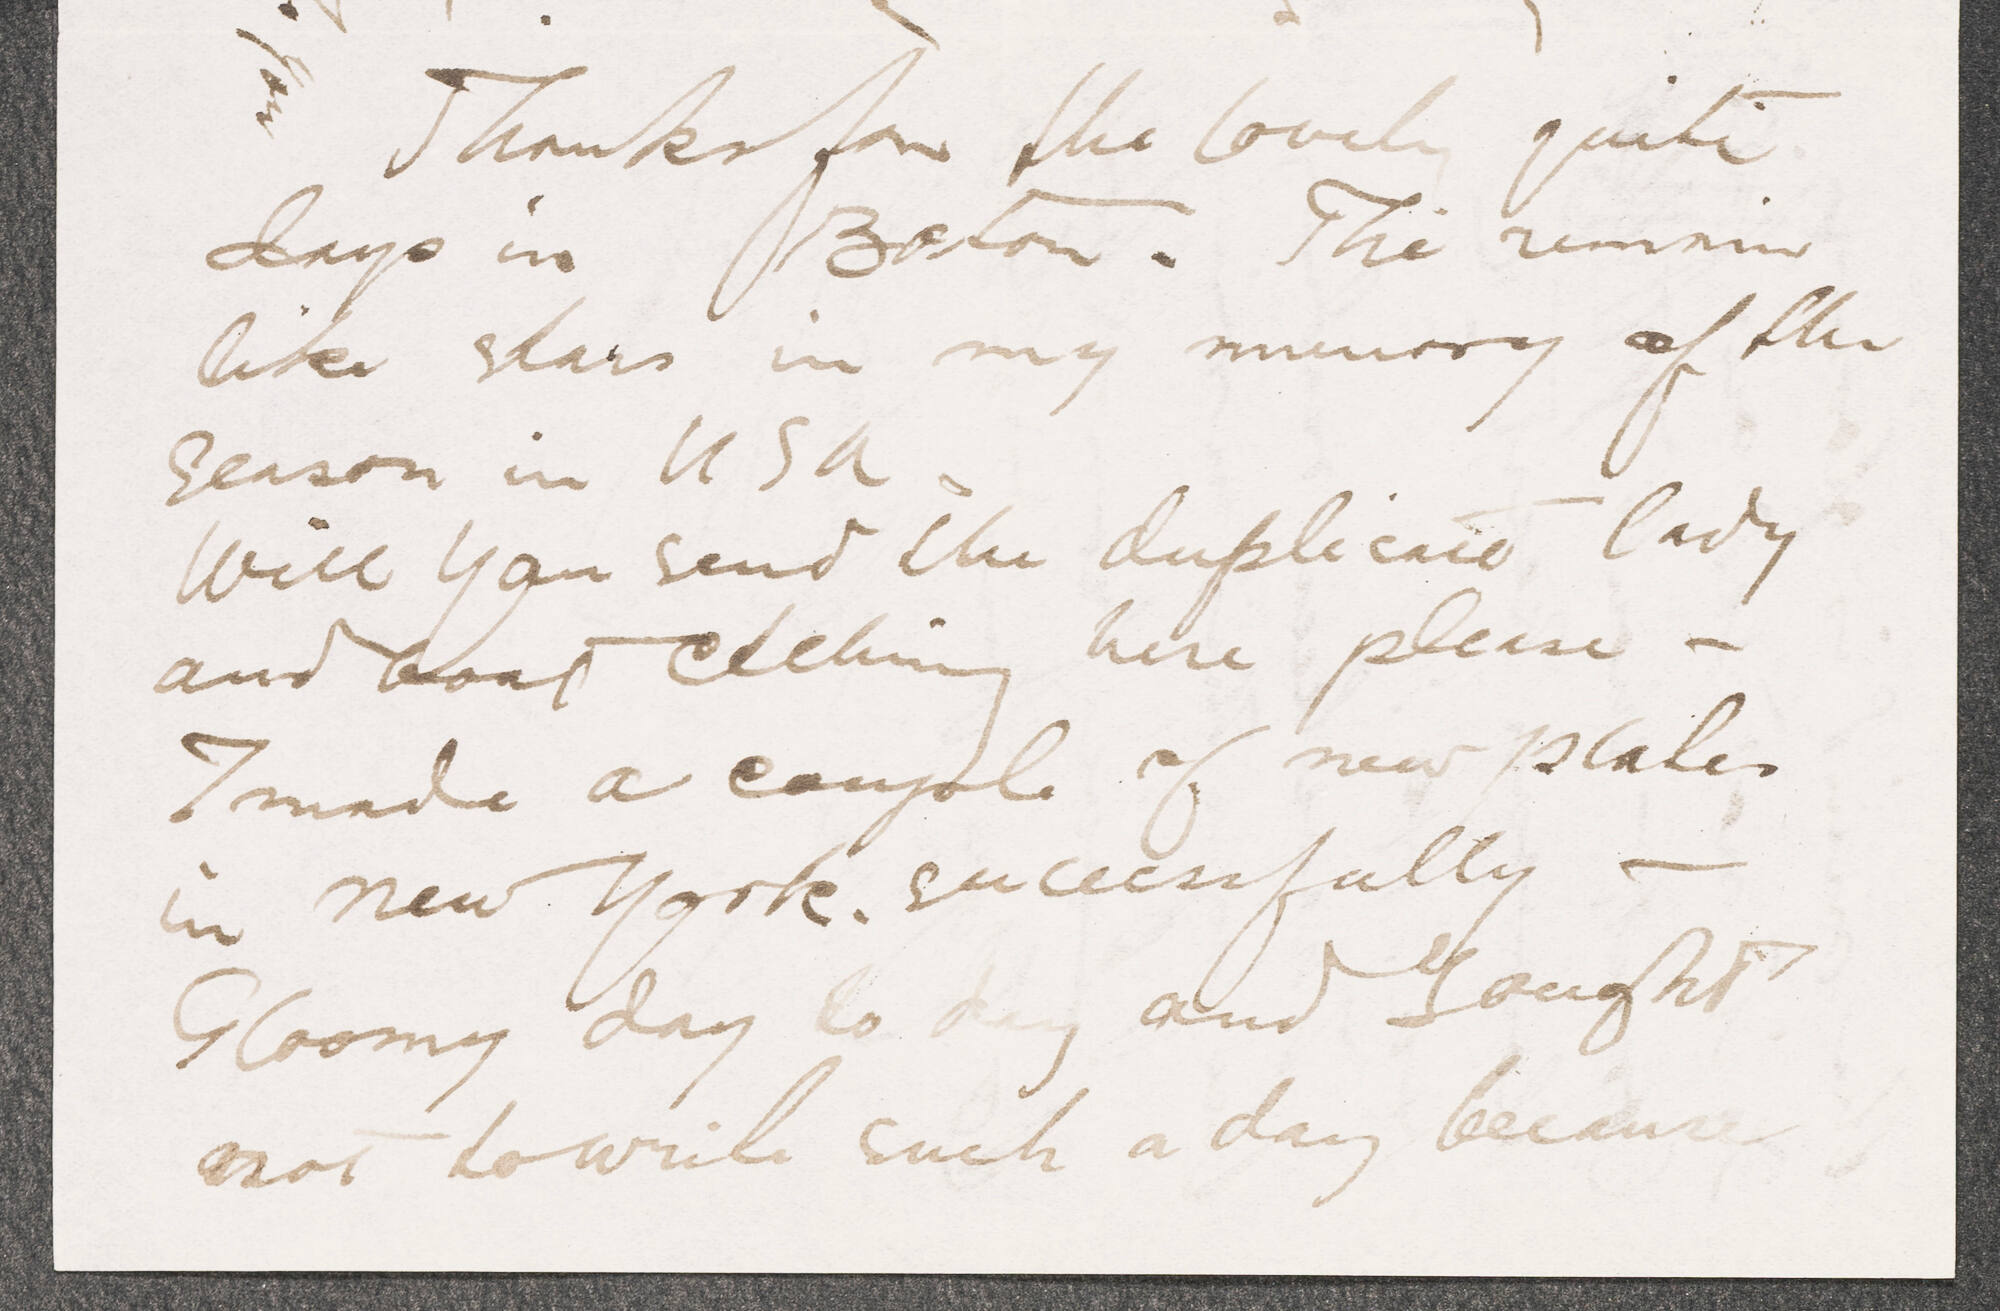 Thanks for the lovely quite
days in Boston. The remain
like stars in my memory of the
season in USA.
Will you send the duplicate lady
and boat etching here please -
I made a couple of new plates
in New York. sucessfully -
Gloomy day to day and I ought
not to write such a day because